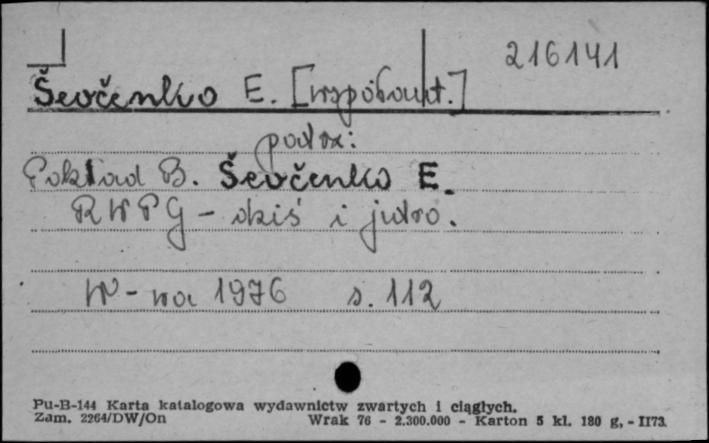 216141
Ševčenko E. [współaut.]
patrz:
Pokład B. Ševčenko E.
RWPG - dziś i jutro.
W-wa 1976 s. 112
Pu-B-144 Karta katalogowa wydawnictw zwartych i ciągłych.
Zam. 2264/DW/On Wrak 76 - 2.300.000 - Karton 5 kl. 180 g, - II73.